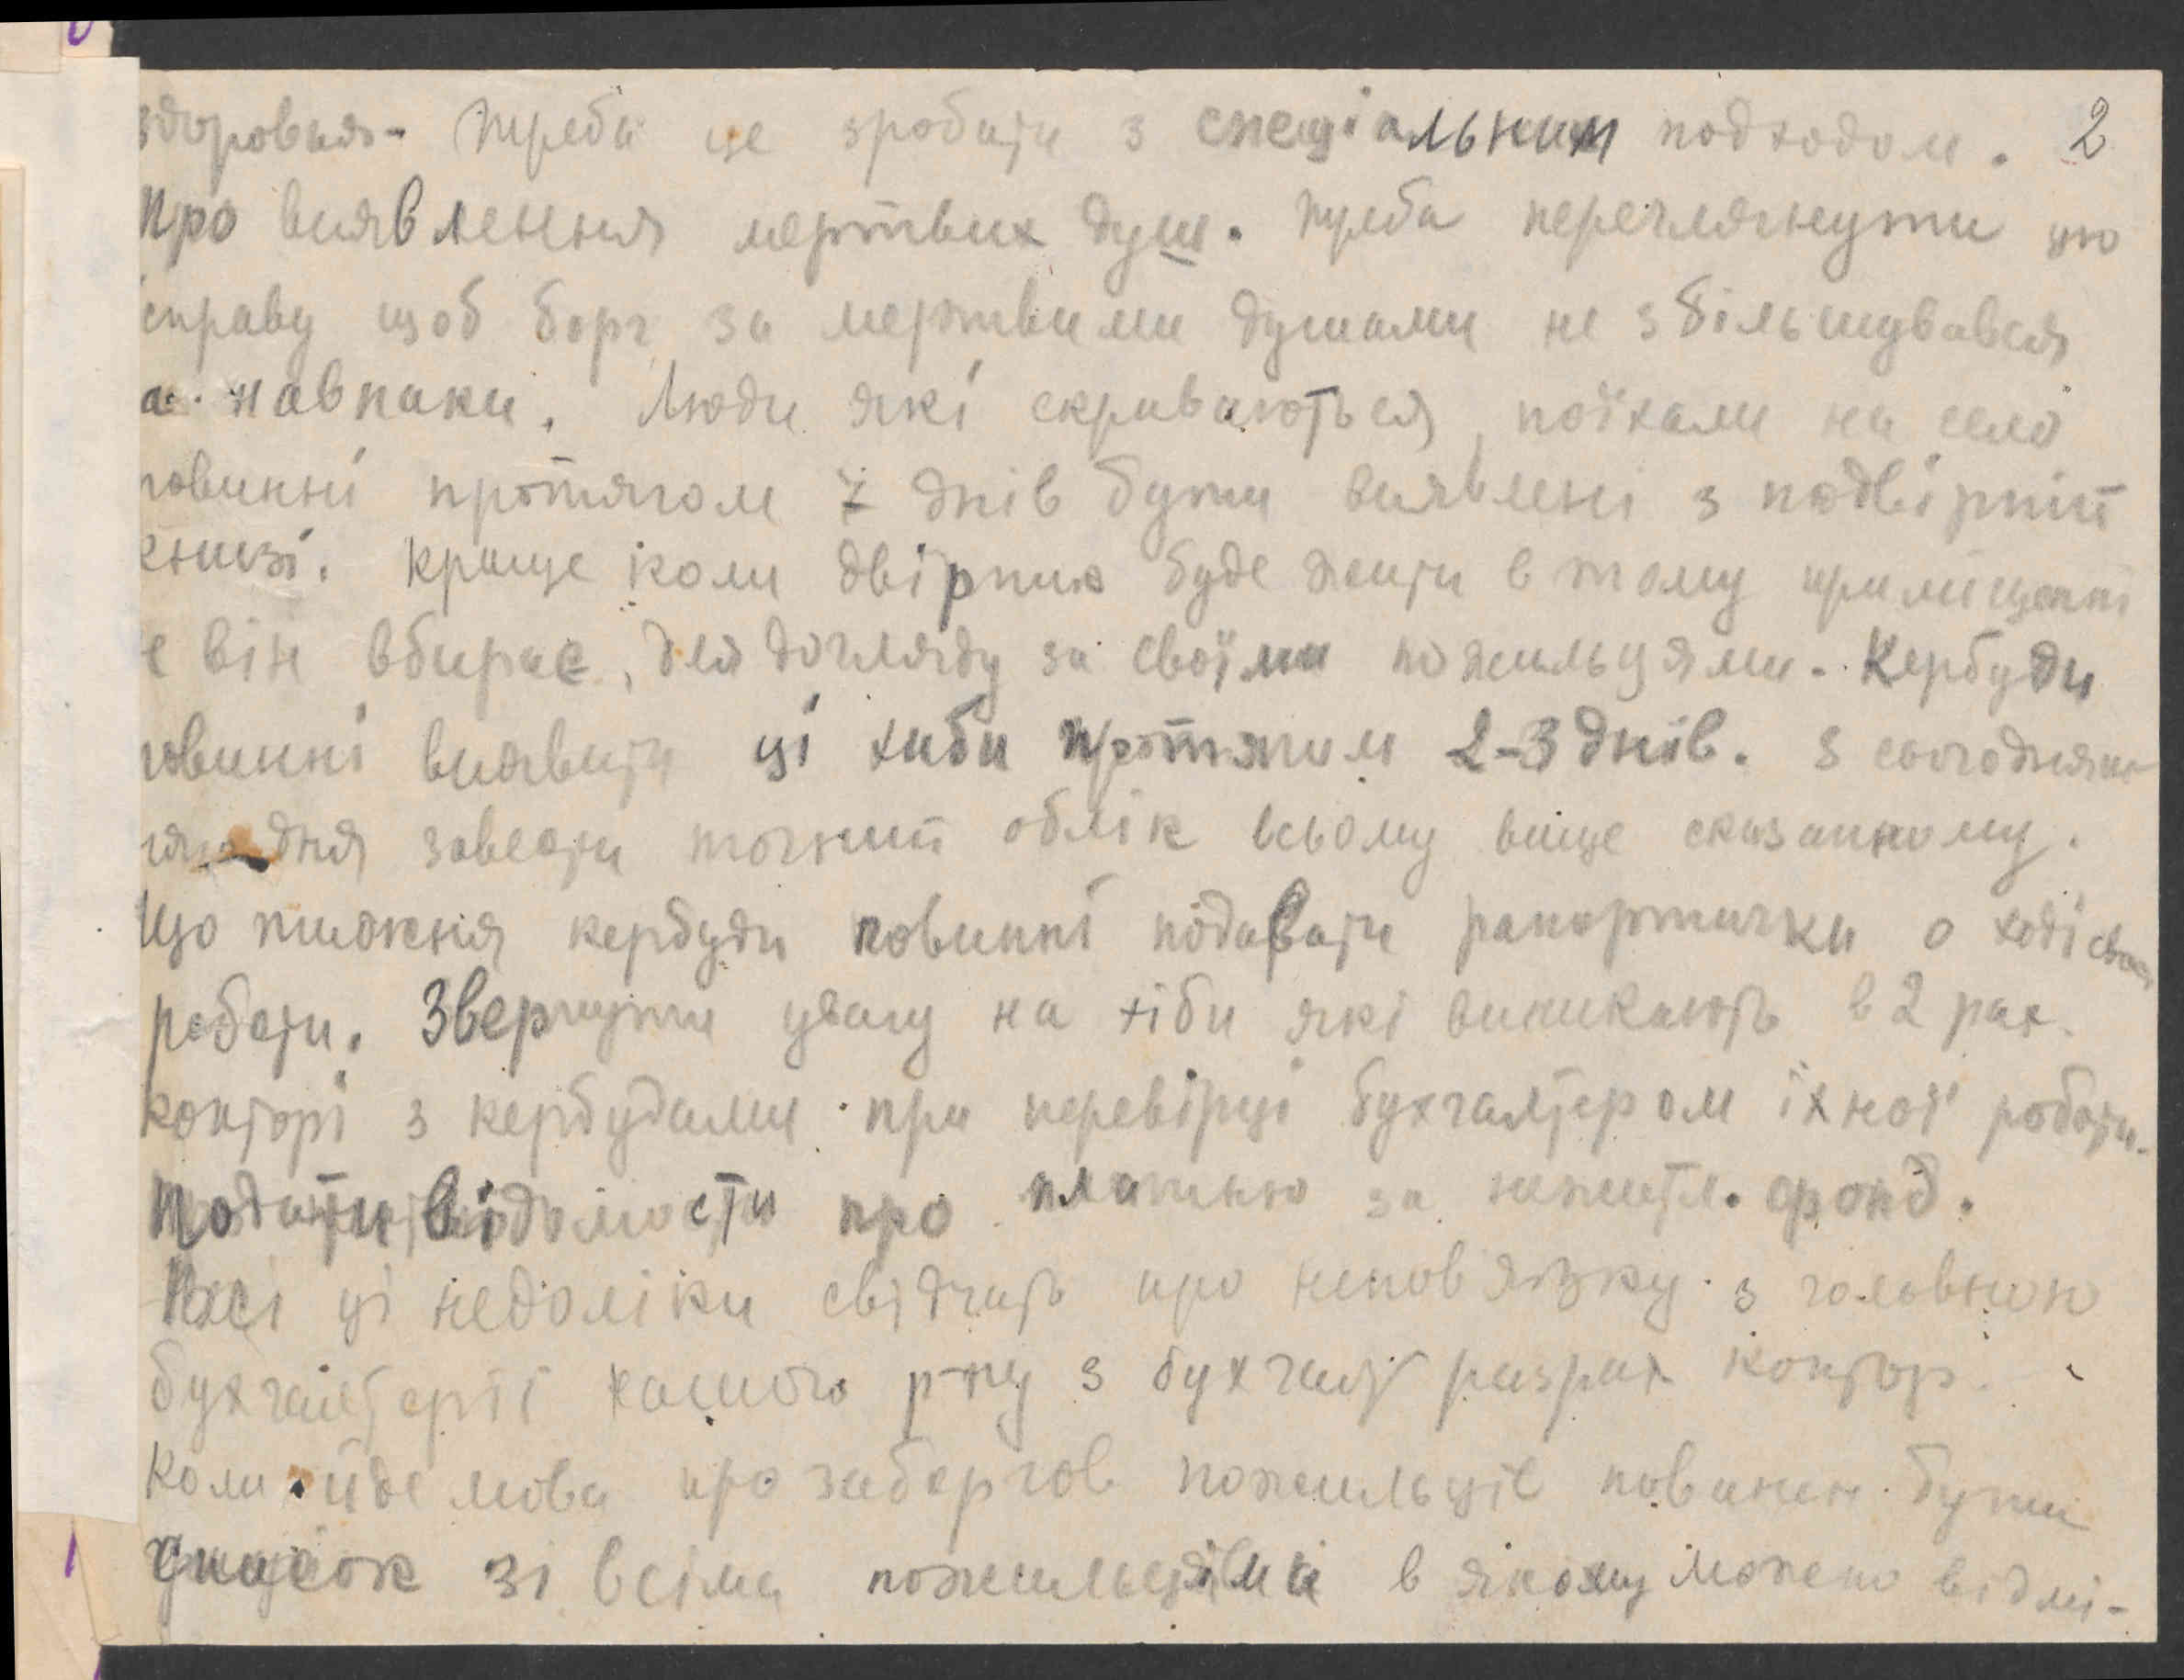 здоровья - треба це зробити з спеціальним подходом. 2
Про виявлення мертвих душ. Треба переглянути цю
справу щоб борг за мертвими душами не збільшувався
а навпаки. Люди які скриваються, поїхали на село
повинні протягом 7 днів бути виявлені з подвірній
книзі. Краще коли двірник буде жити в тому приміщенні
е він вбирає, для догляду за своїми пожильцями. Кербуди
повинні виявити ці хиби протягом 2-3 днів. З сьогодняш-
дня завести точний облік всьому вище сказанному.
Що тижня кербуди повинні подавати рапортички о ході своєї
роботи. Звернути увагу на хіби які виникають в 2 рах.
конторі з кербудами при перевірці бухгалтером їхної роботи.
Подати відомости про платню за нежитл. фонд.
Всі ці недоліки свідчать про непов'язку з головною
бухгалтерії нашого р-ну з бухгалт разрах контор.
Коли йде мова про заборгов пожильців повинен бути
список зі всіма пожильцями в якому можено відмі-